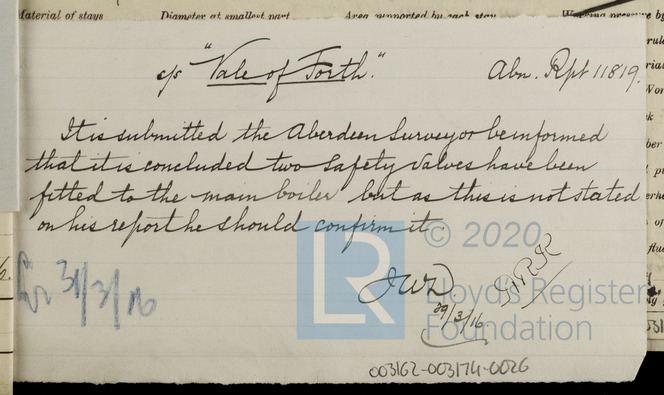 Material of stays Diameter at smallest part Area supported by each stay Working pressure by
c/s "Vale of Forth." Abn. Rpt 11819.
It is submitted the Aberdeen Surveyor be informed
that it is concluded two safety valves have been
fitted to the main boiler but as this is not stated
on his report he should confirm it.
LR © 2020
Lloyd's Register
Foundation
JWD
29/3/16.
Lr 31/3/16
003162-003174-0026